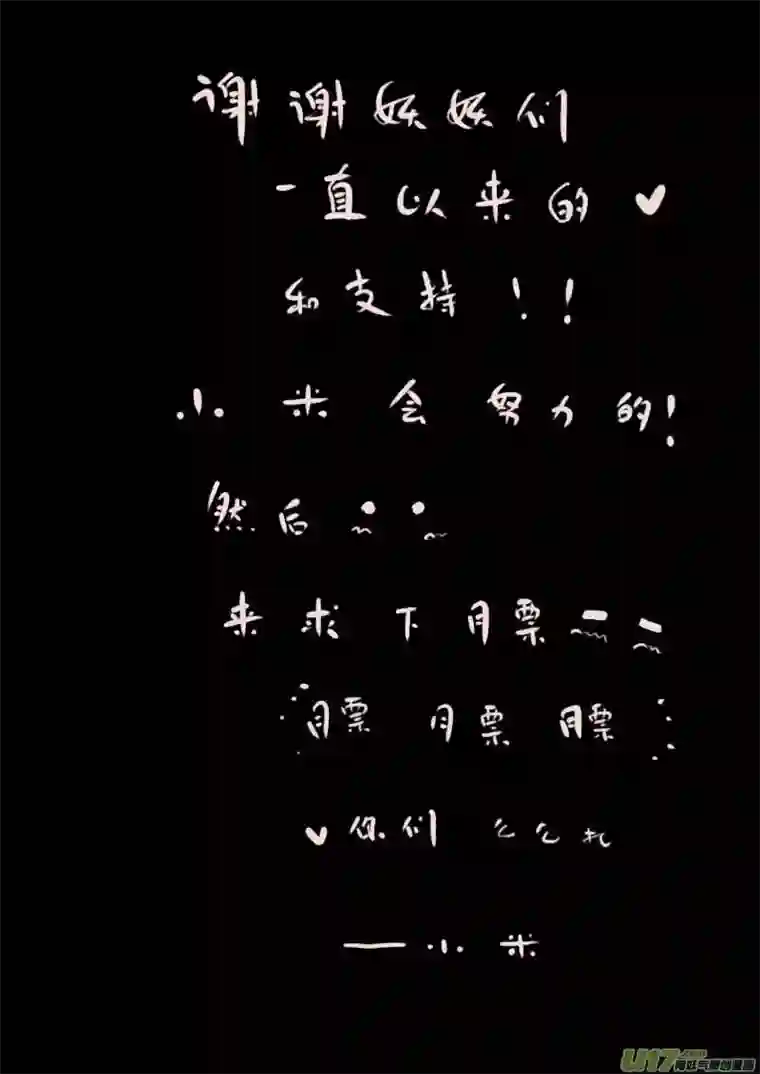 谢谢妖妖们
一直以来的♥
和支持！！
小米会努力的！
然后
来求下月票
月票 月票 月票
♥你们 么么扎
——小米
U17.COM
有妖气原创漫画